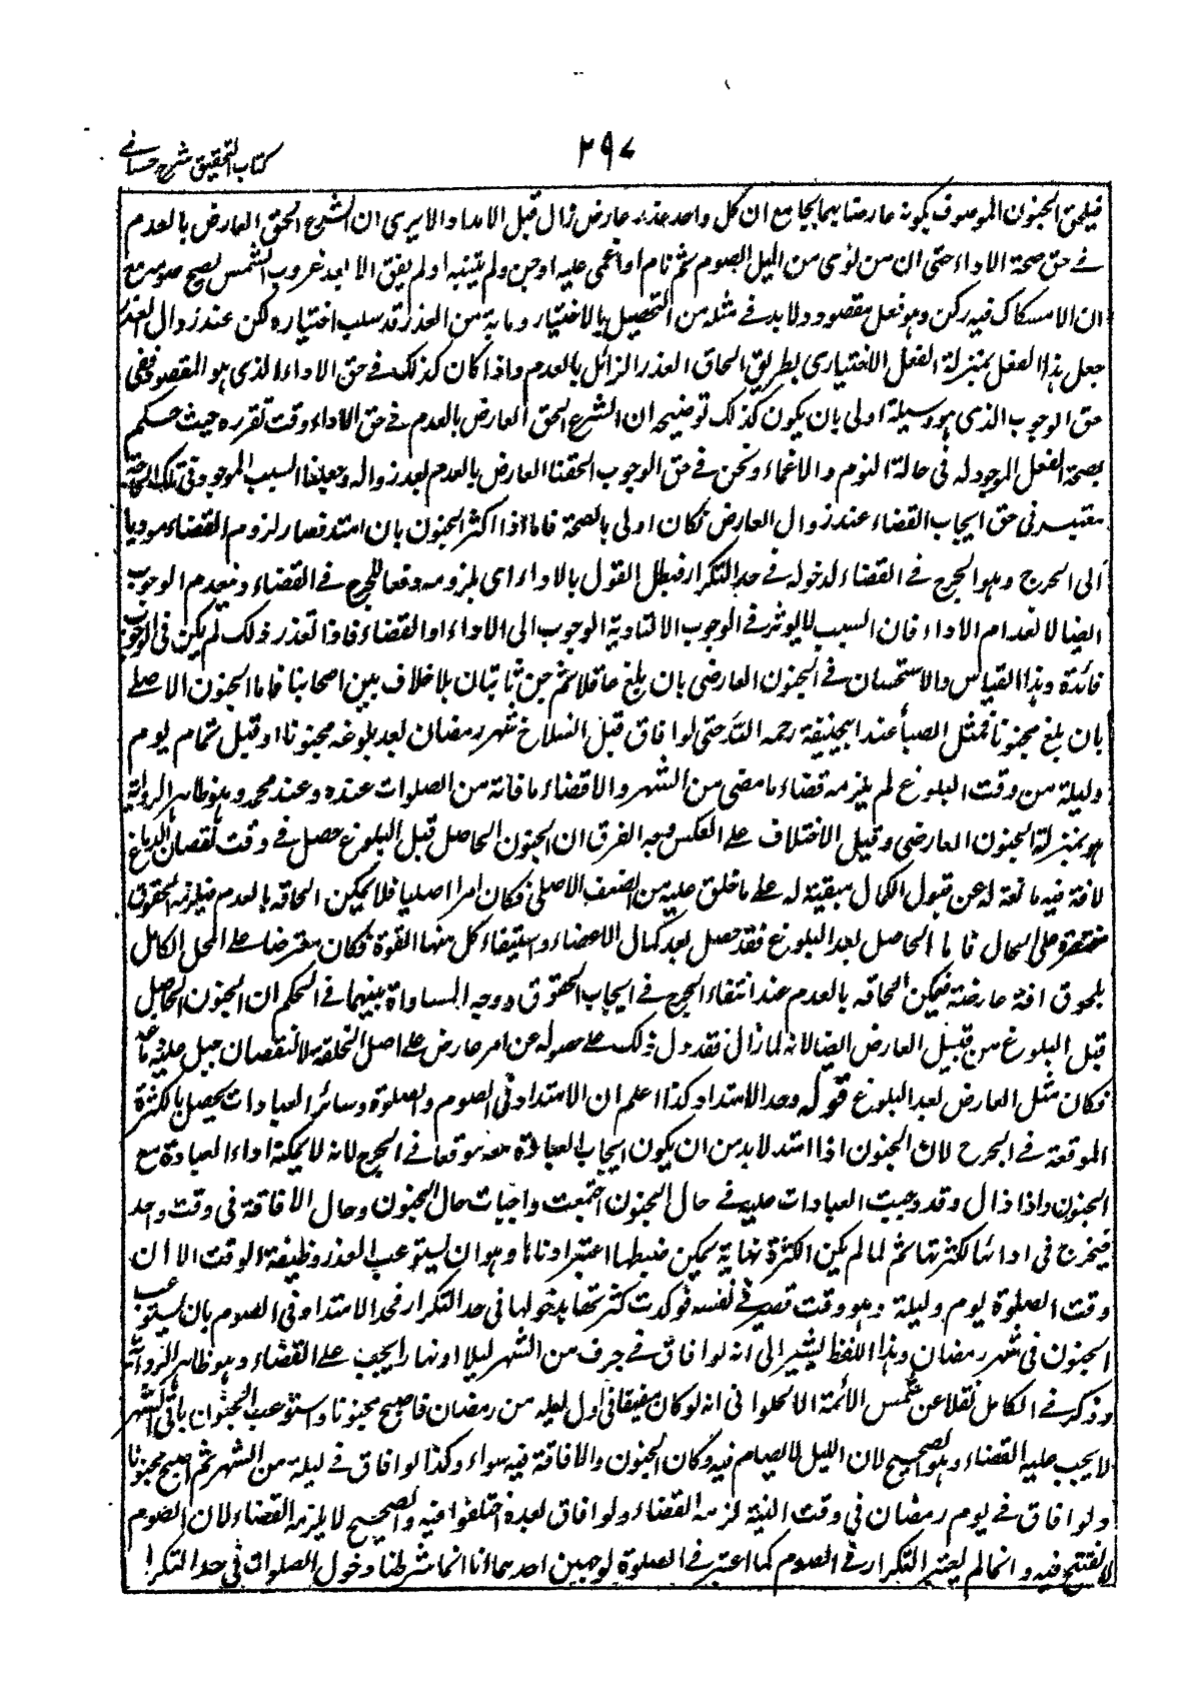 كتاب التحقيق شرح حسامي
٢٩٧
فيلحق الجنون الموصوف بكونه عارضا بهما بجامع ان كل واحد عذر عارض زال قبل الامتداد الا يرى ان الشرع الحق العارض بالعدم
في حق صحة الاداء حتى ان من نوى من الليل الصوم ثم نام او اغمى عليه او جن ولم ينتبه او لم يفق الا بعد غروب الشمس يصح صومه مع
ان الامساك فيه ركن وهو فعل مقصود ولا بد في مثله من التحصيل بالاختيار وما به من العذر قد سلب اختياره لكن عند زوال العذر
جعل هذا الفعل بمنزلة الفعل الاختياري بطريق الحاق العذر الزائل بالعدم واذا كان كذلك في حق الاداء الذي هو المقصود ففي
حق الوجوب الذي هو وسيلة اولى بان يكون كذلك توضيحه ان الشرع الحق العارض بالعدم في حق الاداء وقت تقرره حيث حكم
بصحة الفعل الموجود له في حالة النوم والاغماء ونحن في حق الوجوب الحقنا العارض بالعدم بعد زواله وجعلنا السبب الموجود في تلك الحالة
معتبر في حق ايجاب القضاء عند زوال العارض فكان اولى بالصحة فاما اذا اكثر الجنون بان امتد فصار لزوم القضاء موديا
الى الحرج وهو الحرج في القضاء لدخوله في حد التكرار فبطل القول بالاداء اي بلزومه دفعا للحرج في القضاء وينعدم الوجوب
ايضا لانعدام الاداء فان السبب لا يوثر في الوجوب الا لتادية الوجوب الى الاداء او القضاء فاذا تعذر ذلك لم يكن في الوجوب
فائدة وهذا القياس والاستحسان في الجنون العارضي بان بلغ عاقلا ثم جن ثابتان بلا خلاف بين اصحابنا فاما الجنون الاصلي
بان بلغ مجنونا فمثل الصبا عند ابيحنيفة رحمه الله حتى لو افاق قبل انسلاخ شهر رمضان بعد بلوغه مجنونا او قبل تمام يوم
وليلة من وقت البلوغ لم يلزمه قضاء ما مضى من الشهر والا قضاء ما فاته من الصلوات عنده وعند محمد وهو ظاهر الرواية
هو بمنزلة الجنون العارضي وقيل الاختلاف على العكس وجه الفرق ان الجنون الحاصل قبل البلوغ حصل في وقت نقصان الدماغ
لافة فيه مانعة له عن قبول الكمال مبقية له على ما خلق عليه من الضعف الاصلي فكان امرا اصليا فلا يمكن الحاقه بالعدم فيلزمه الحقوق
مقتصرة على الحال فاما الحاصل بعد البلوغ فقد حصل بعد كمال الاعضاء واستيفاء كل منها القوة فكان معترضا على المحل الكامل
بلحوق افة عارضة فيمكن الحاقه بالعدم عند انتفاء الحرج في ايجاب الحقوق ووجه المساواة بينهما في الحكم ان الجنون الحاصل
قبل البلوغ من قبيل العارض ايضا لانه لما زال فقد دل ذلك على حصوله عن امر عارض على اصل الخلقة لا لنقصان جبل عليه دماغه
فكان مثل العارض بعد البلوغ قوله وحد الامتداد كذا اعلم ان الامتداد في الصوم والصلوة وسائر العبادات يحصل بالكثرة
الموقعة في الحرج لان الجنون اذا امتد لا بد من ان يكون ايجاب العبادة معه موقعا في الحرج لانه لا يمكنه اداء العبادة مع
الجنون واذا زال وقد وجبت العبادات عليه في حال الجنون اجتمعت واجبات حال الجنون وحال الافاقة في وقت واحد
فيحرج في ادائها لكثرتها ثم لما لم يكن الكثرة نهاية يمكن ضبطها اعتبر ادناها وهو ان يستوعب العذر وظيفة الوقت الا ان
وقت الصلوة يوم وليلة وهو وقت قصير في نفسه فوكدت كثرتها بدخولها في حد التكرار فحد الامتداد في الصوم بان يستوعب
الجنون في شهر رمضان وهذا اللفظ يشير الى انه لو افاق في جزء من الشهر ليلا او نهارا يجب عليه القضاء وهو ظاهر الرواية
وذكر في الكامل نقلا عن شمس الأئمة الحلواني انه لو كان مفيقا في اول ليلة من رمضان فاصبح مجنونا واستوعب الجنون باقي الشهر
لا يجب عليه القضاء وهو الصحيح لان الليل لا يصام فيه فكان الجنون والافاقة فيه سواء وكذا لو افاق في ليلة من الشهر ثم اصبح مجنونا
ولو افاق في يوم رمضان في وقت النية لزمه القضاء ولو افاق بعده اختلفوا فيه والصحيح لا يلزمه القضاء لان الصوم
لا يفتتح فيه وانما لم يعتبر التكرار في الصوم كما اعتبر في الصلوة لوجهين احدهما انا انما شرطنا دخول الصلوات في حد التكرار